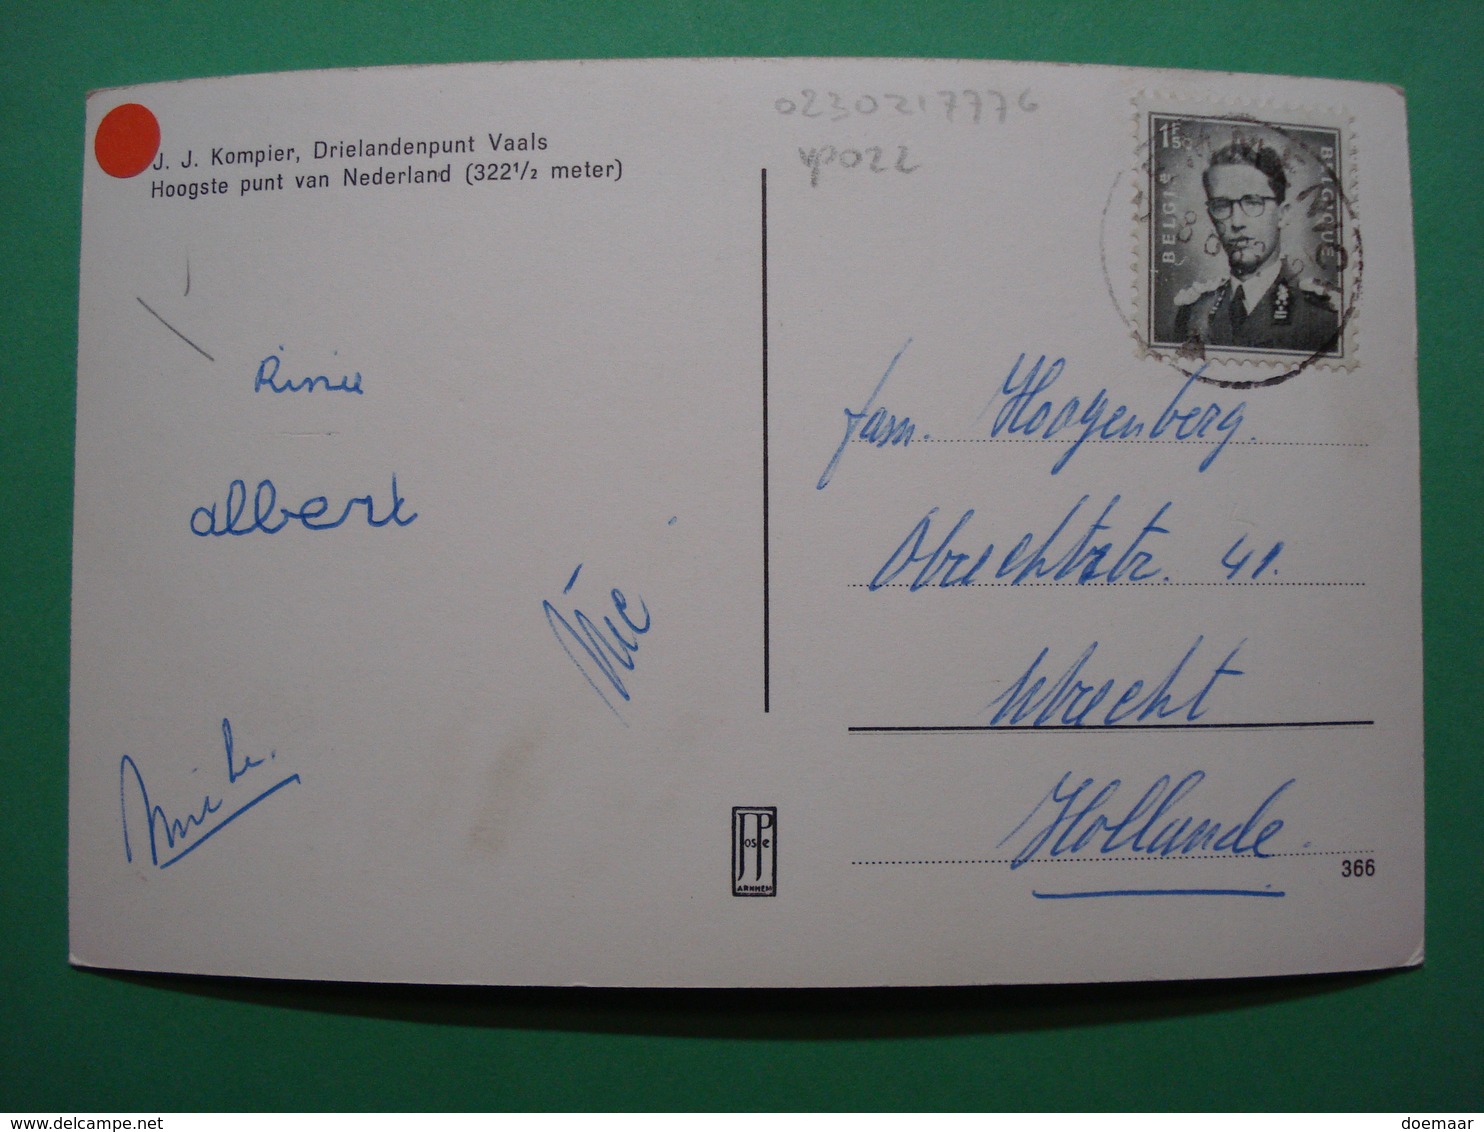 J. J. Kompier, Drielandenpunt Vaals
Hoogste punt van Nederland (322½ meter)
0230217776
vp022
1F50
BELGIE
BELGIQUE
Rinie
albert
fam. Hoogenberg.
Obrechtstr. 41.
Utrecht
Hollande.
JosPe
ARNHEM
366
delcampe.net
doemaar